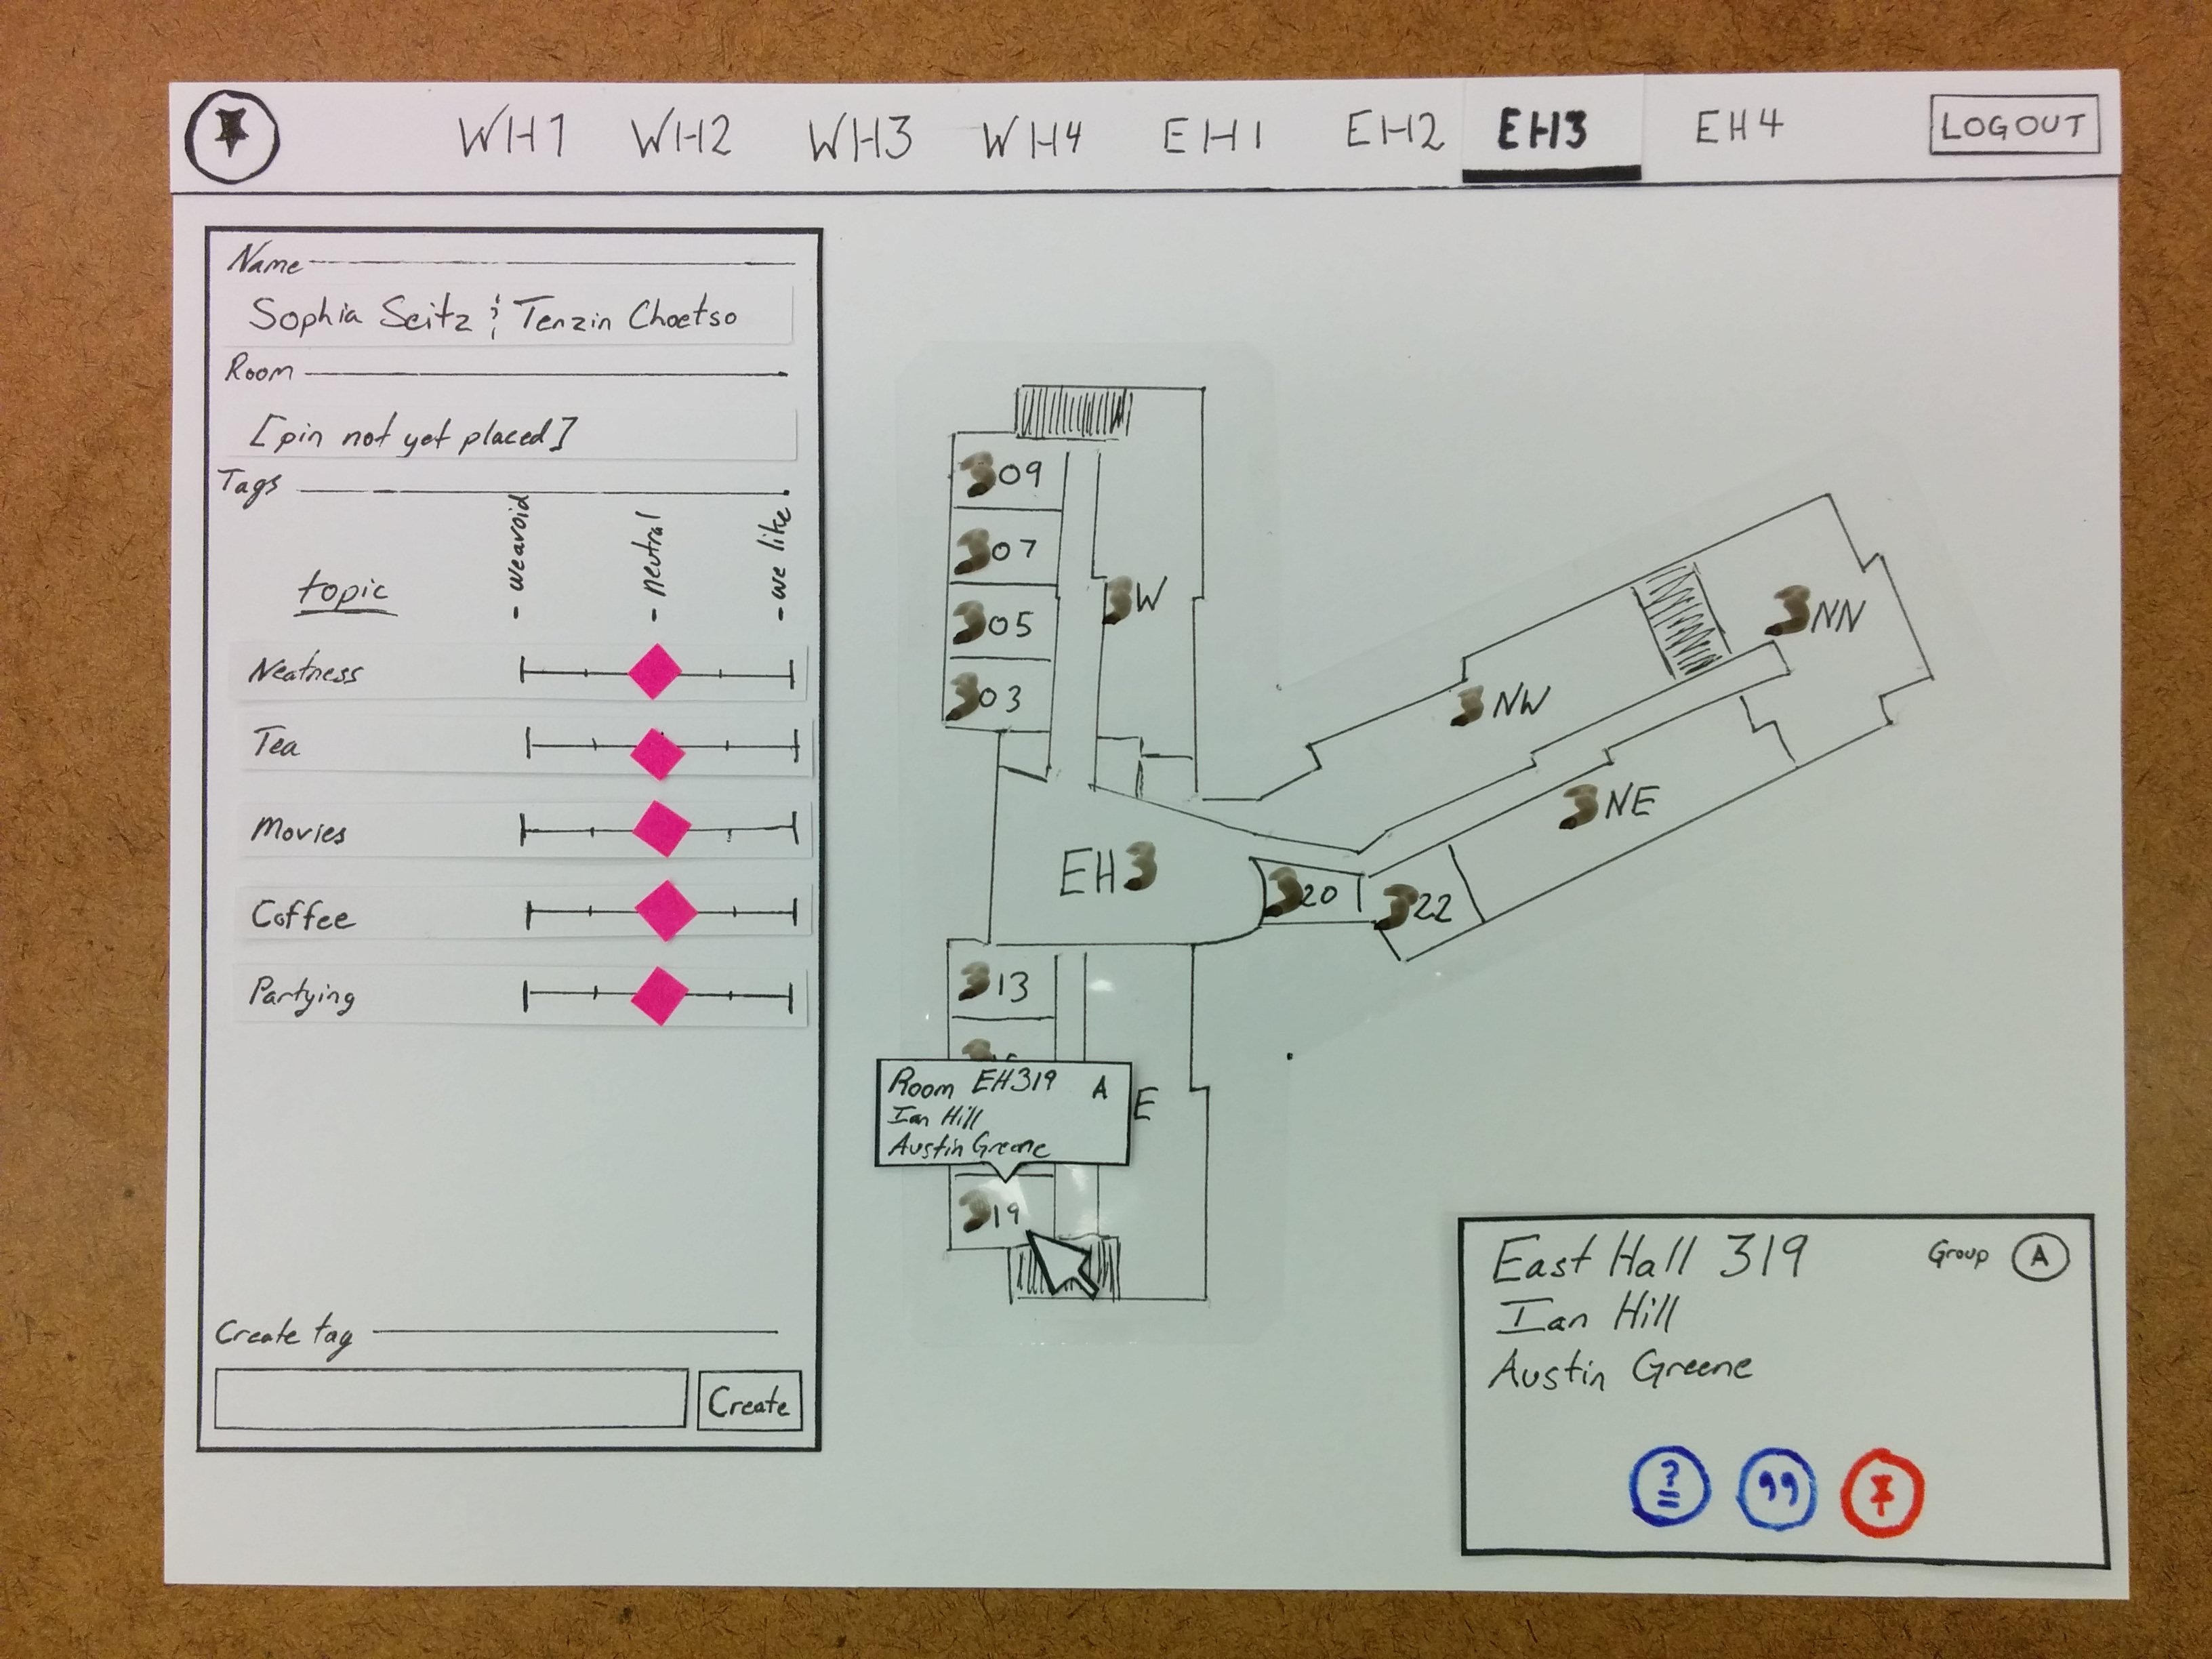 WH1 WH2 WH3 WH4 EH1 EH2 EH3 EH4 LOGOUT
Name
Sophia Seitz & Tenzin Choetso
Room
[pin not yet placed]
Tags
topic
- we avoid
- neutral
- we like
Neatness
Tea
Movies
Coffee
Partying
Create tag
Create
309
307
305
303
3W
3NW
3NN
3NE
EH3
320
322
313
E
Room EH319 A
Ian Hill
Austin Greene
319
East Hall 319 Group A
Ian Hill
Austin Greene
?
"